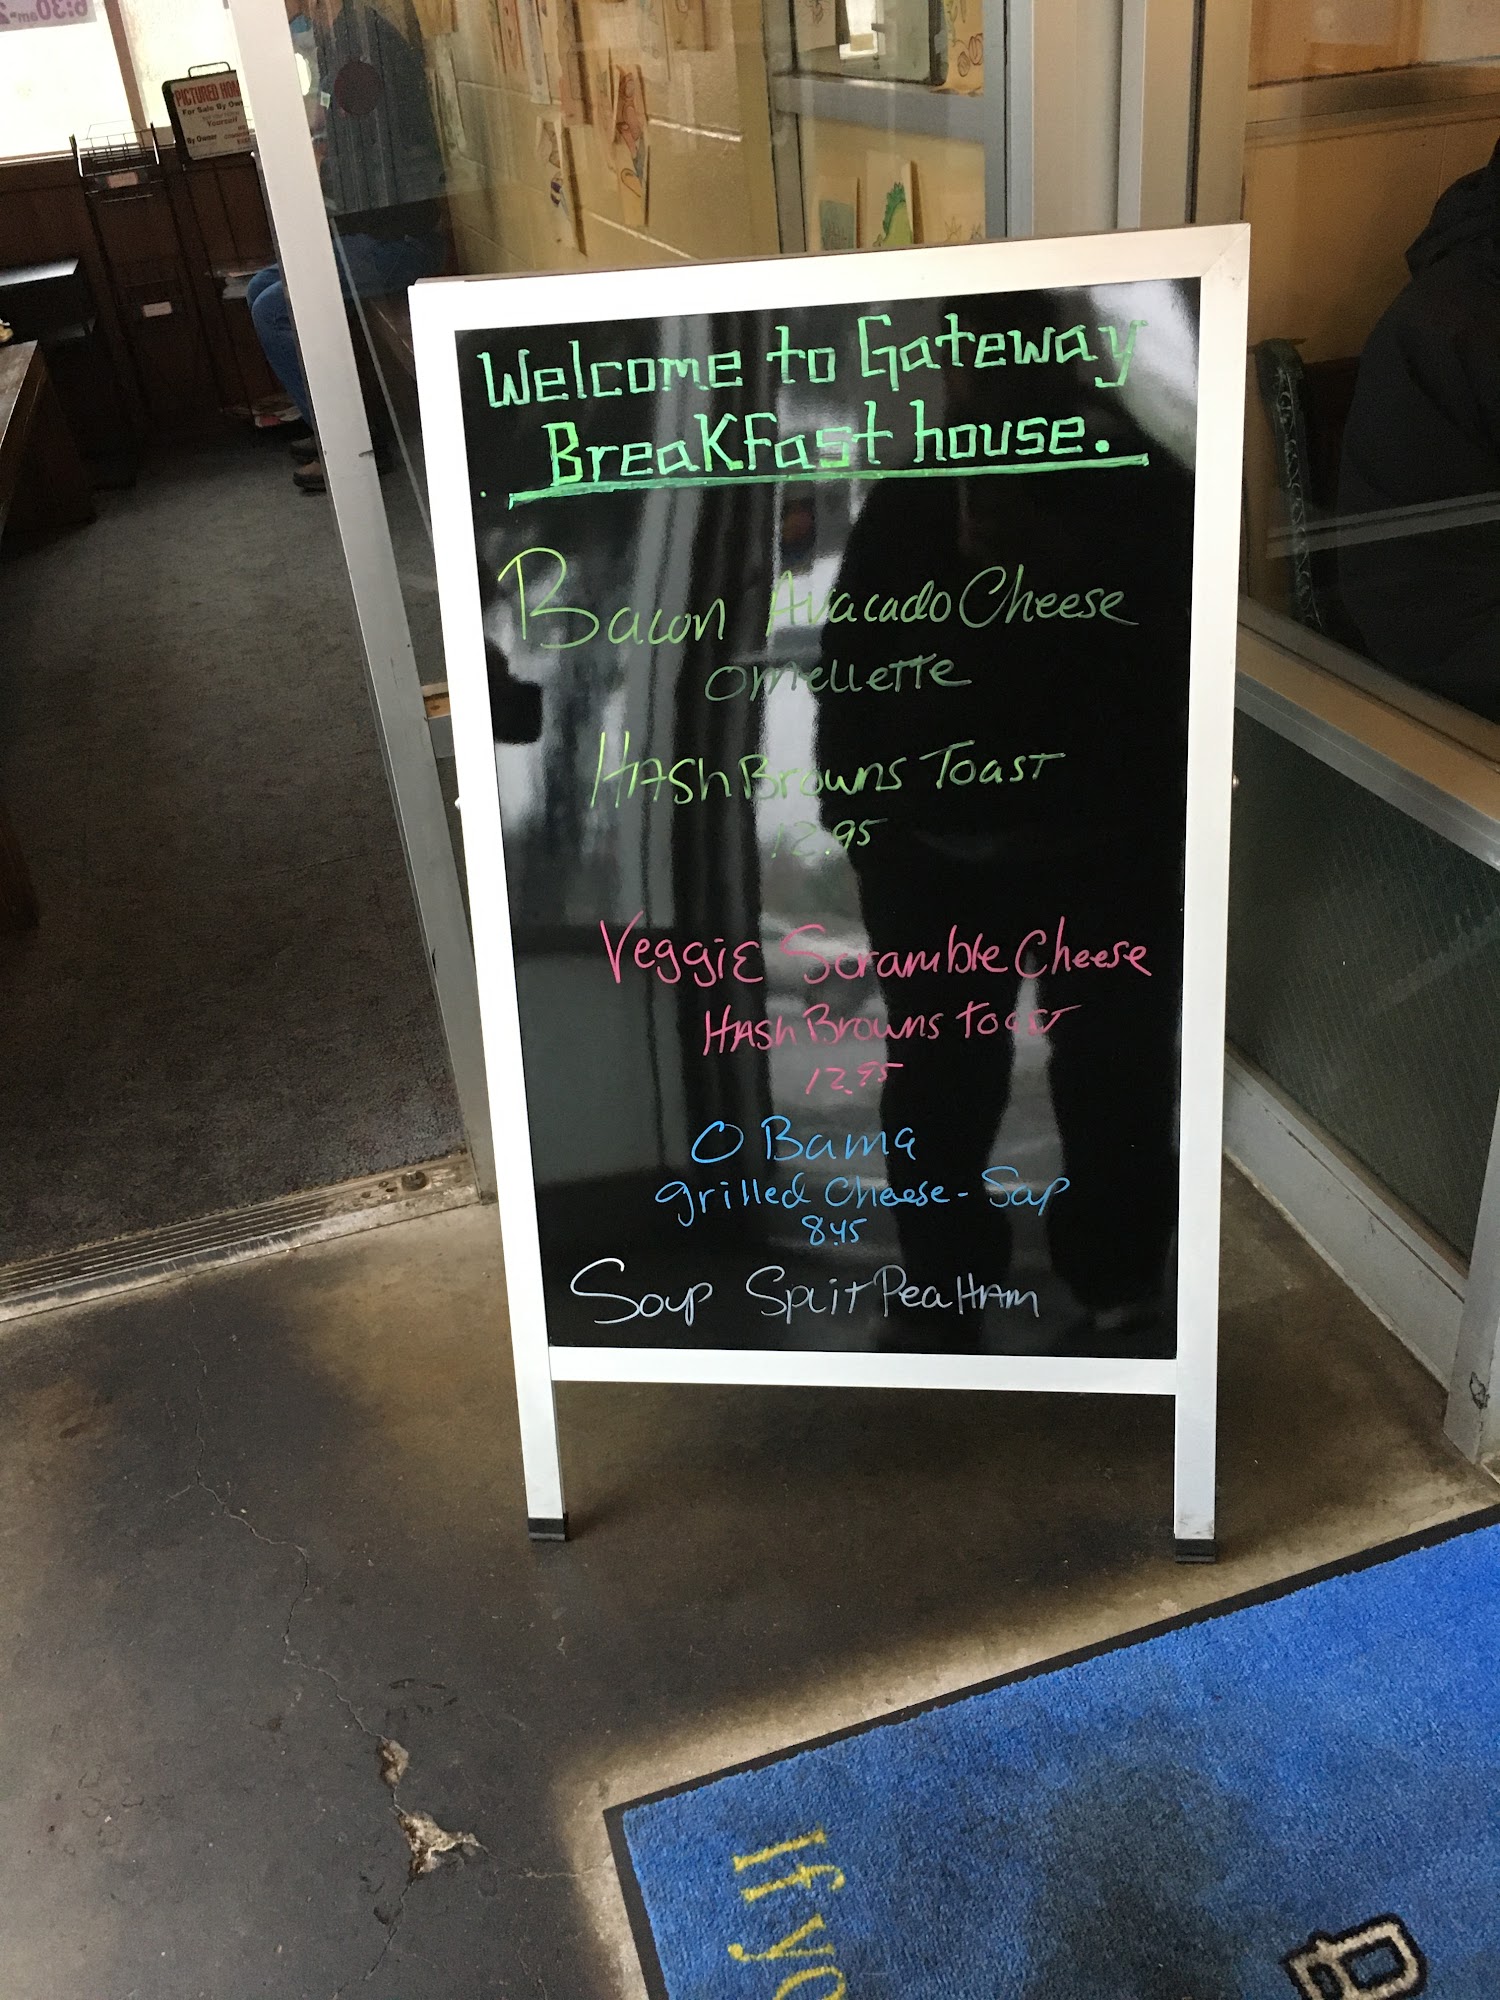 6:30am-2
PICTURED HOM
For Sale By Own
Yourself
By Owner
Welcome to Gateway
Breakfast house.
Bacon Avacado Cheese
omellette
Hash Browns Toast
12.95
Veggie Scramble Cheese
Hash Browns toast
12.95
O Bama
grilled cheese - Sop
8.45
Soup Split Pea Ham
If yo